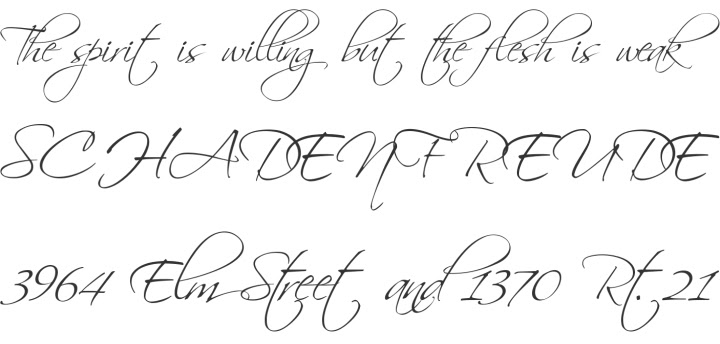 The spirit is willing but the flesh is weak
SCHADENFREUDE
3964 Elm Street and 1370 Rt. 21